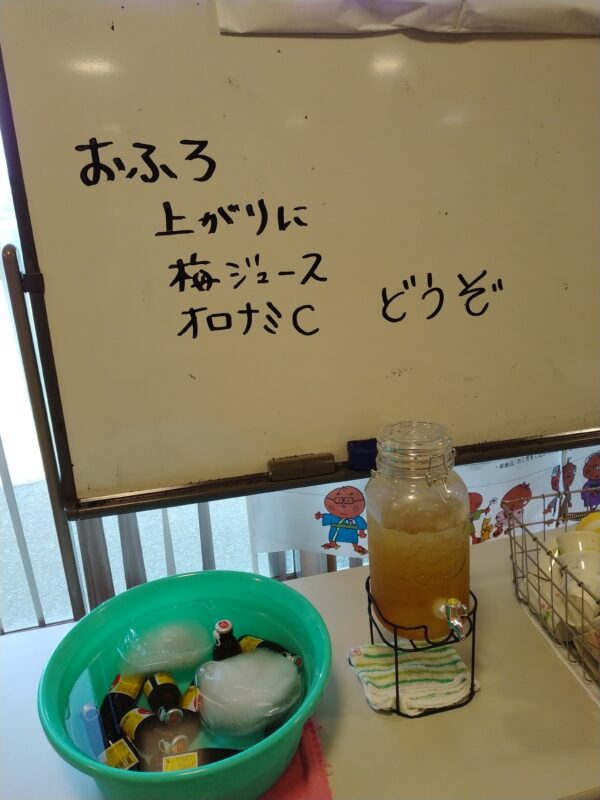 おふろ
上がりに
梅ジュース
オロナミC
どうぞ